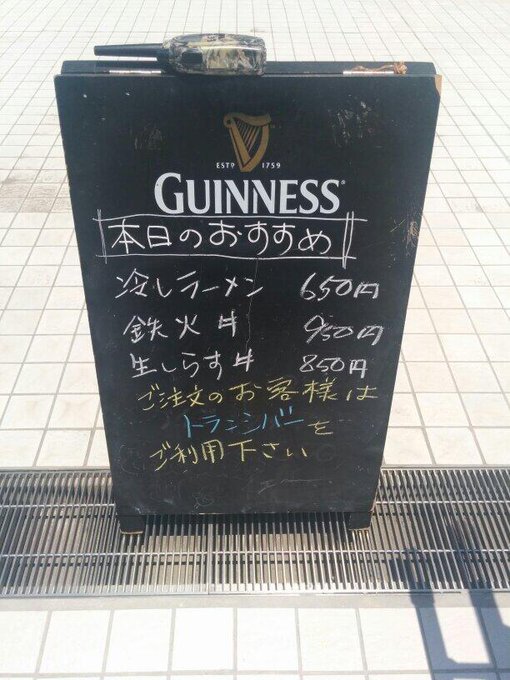 ESTD 1759
GUINNESS
本日のおすすめ
冷しラーメン 650円
鉄火丼 950円
生しらす丼 850円
ご注文のお客様は
トランシバーを
ご利用下さい